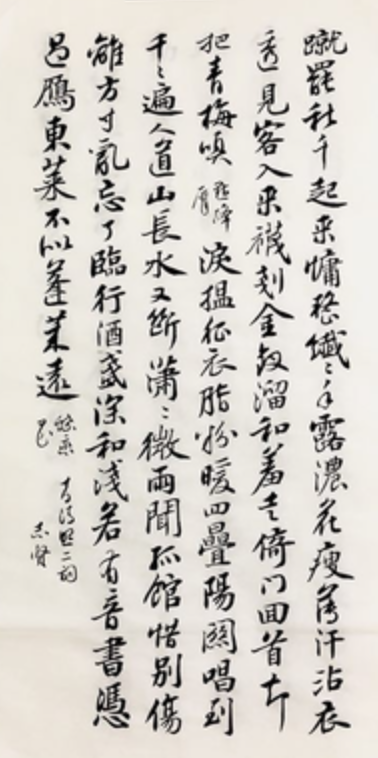 蹴罷秋千起来慵整纖〻手露濃花瘦薄汗沾衣
透見客入来襪剗金釵溜和羞走倚门回首却
把青梅嗅 點絳唇 淚搵征衣脂粉暖四疊陽關唱到
千〻遍人道山長水又斷瀟〻微雨聞孤館惜别傷
離方寸亂忘了臨行酒盞深和淺若有音書憑
過鴈東萊不似蓬萊遠 蝶恋花
李清照二詞